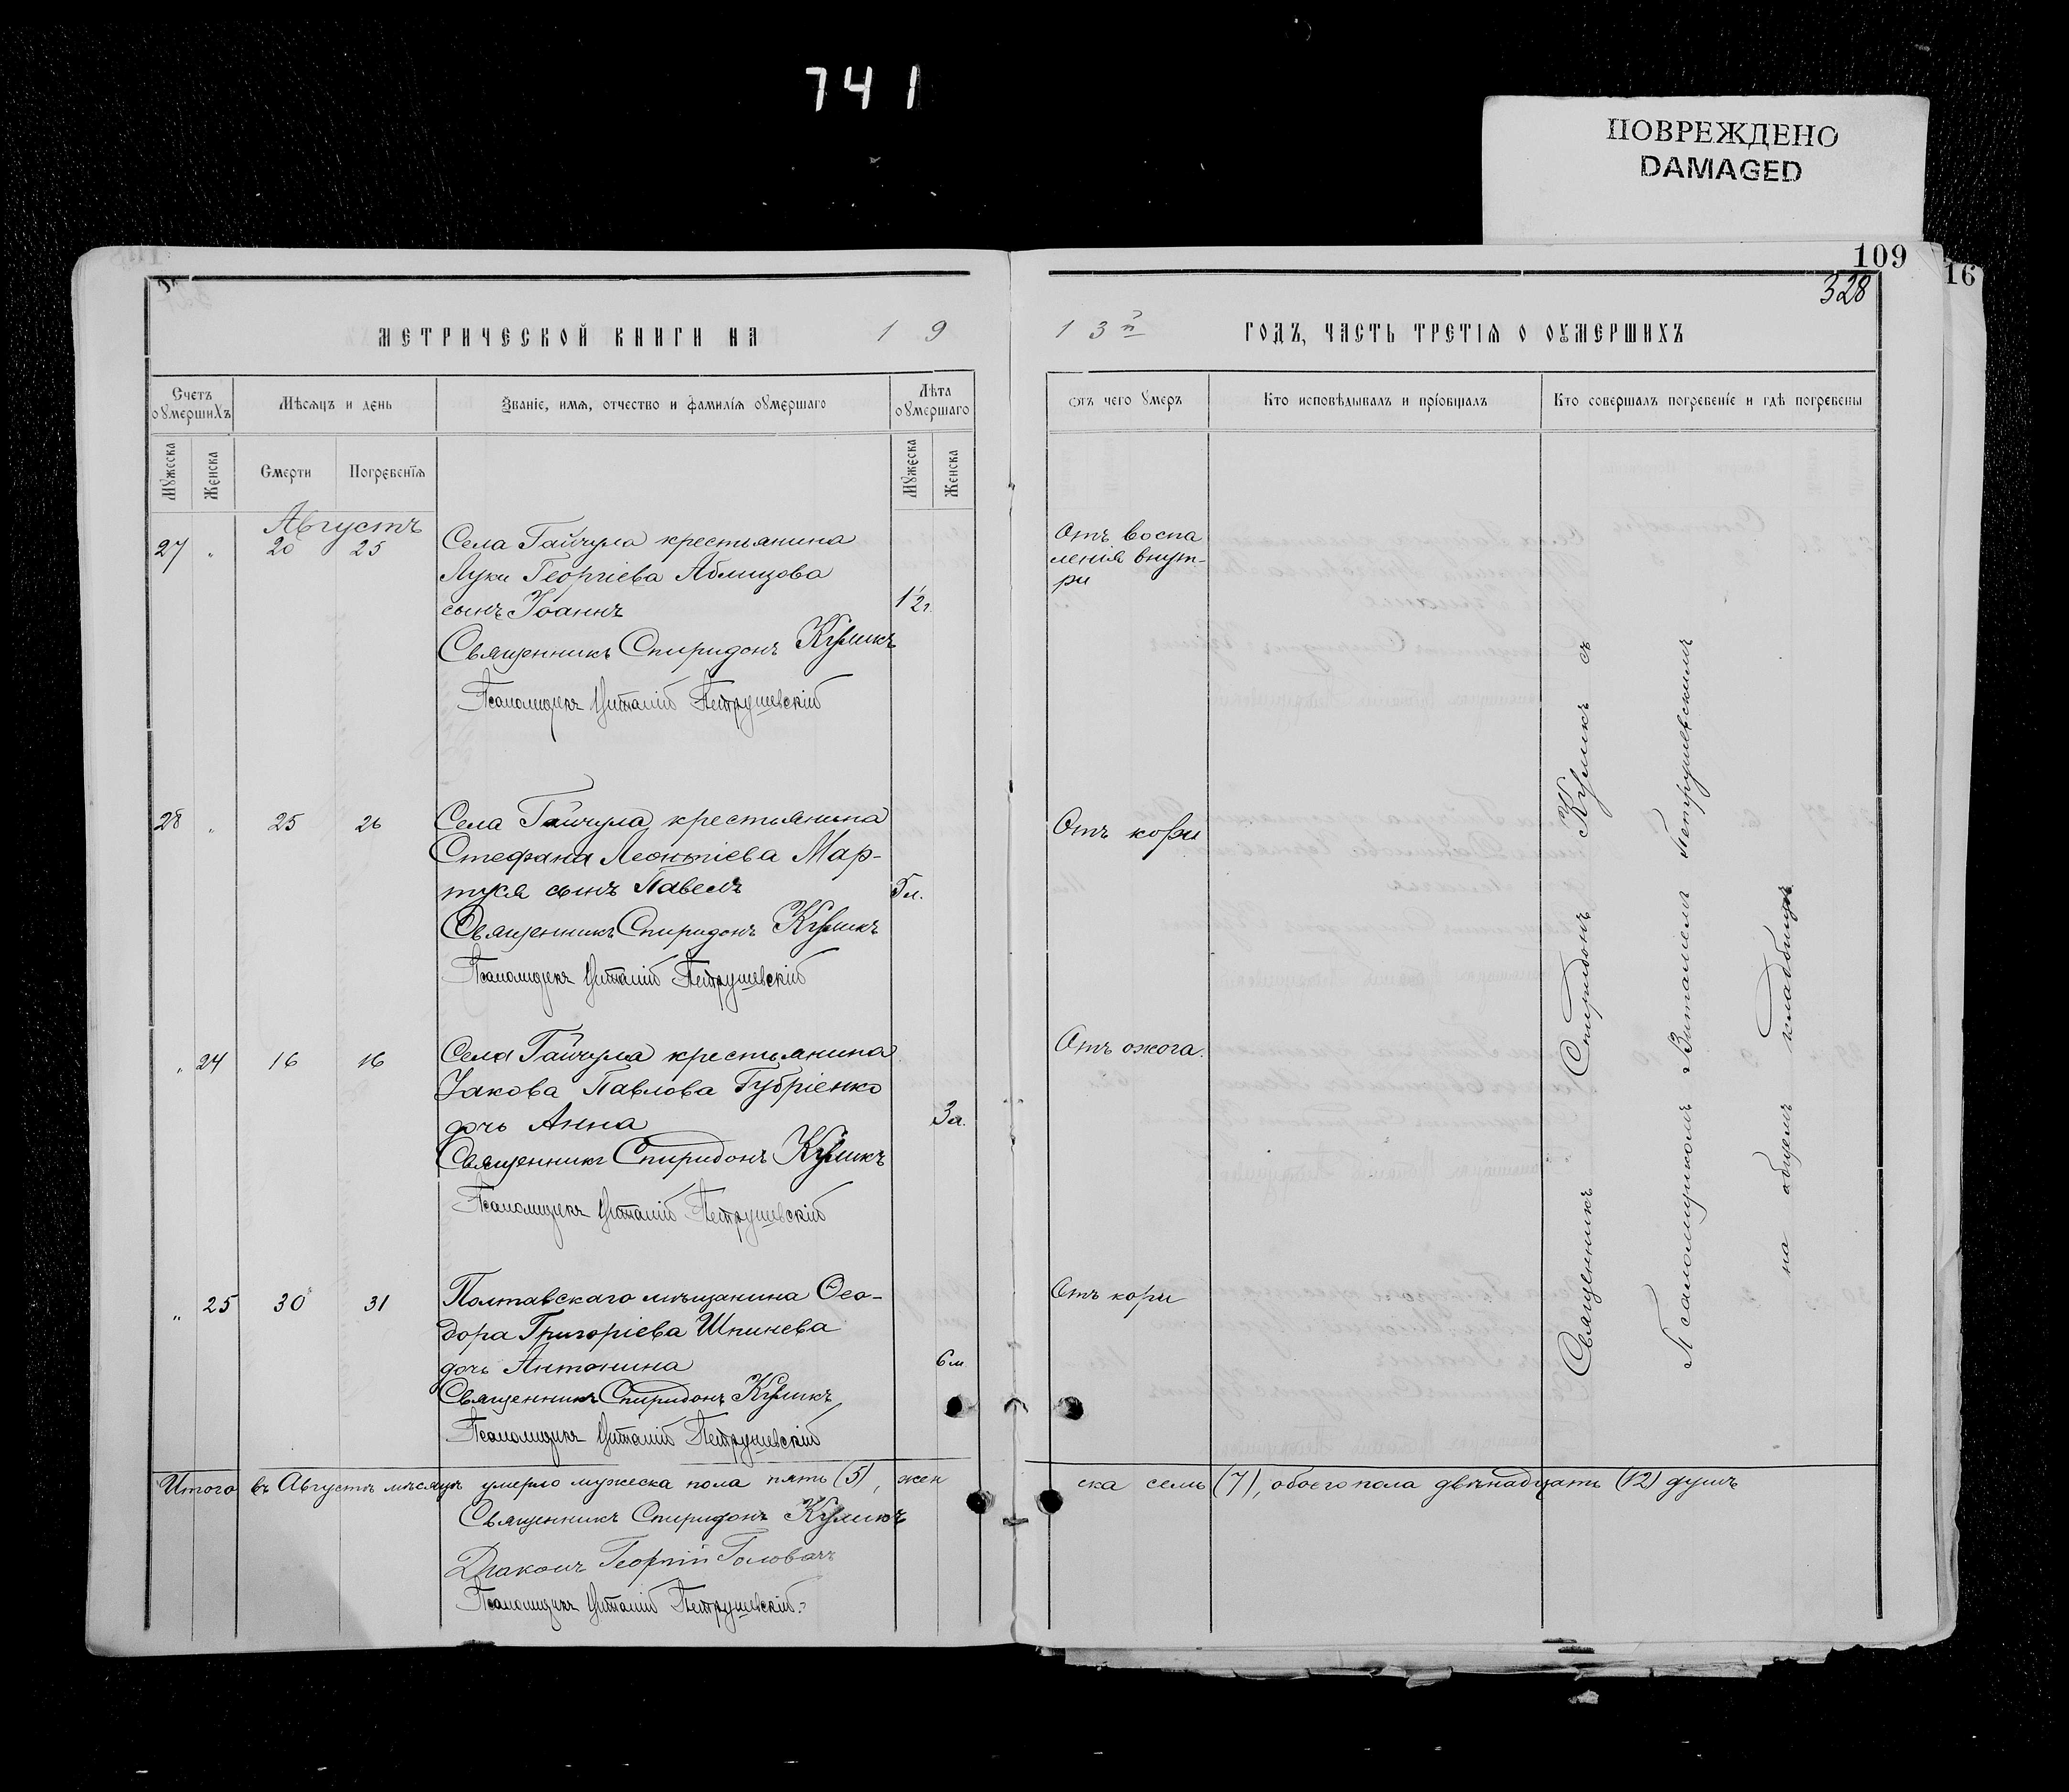 741
ПОВРЕЖДЕНО
DAMAGED
109
16
328
МЕТРИЧЕСКОЙ КНИГИ НА 19
13 ГОДЪ, ЧАСТЬ ТРЕТІѦ О ОУМЕРШИХЪ
Счетъ оумершихъ
Мѣсяцъ и день
Званіе, имя, отчество и фамилія оумершаго
Лѣта оумершаго
Отъ чего умеръ
Кто исповѣдывалъ и пріобщалъ
Кто совершалъ погребеніе и гдѣ погребены
Мужеска
Женска
Смерти
Погребенія
Мужеска
Женска
Августъ
27 " 20 25 Села Гайчула крестьянина
Луки Георгіева Аблицова
сынъ Іоаннъ 1½ г.
Отъ воспа
ленія внут-
ри
Священникъ Спиридонъ Куликъ
Псаломщикъ Виталій Петрушевскій
28 " 25 26 Села Гайчула крестьянина
Стефана Леонтіева Мар-
туся сынъ Павелъ 5 м.
Отъ кори
Священникъ Спиридонъ Куликъ
Псаломщикъ Виталій Петрушевскій
" 24 16 16 Села Гайчула крестьянина
Іакова Павлова Губріенко
дочь Анна 3 л.
Отъ ожога.
Священникъ Спиридонъ Куликъ
Псаломщикъ Виталій Петрушевскій
" 25 30 31 Полтавскаго мѣщанина Ѳео-
дора Григоріева Шпинева
дочь Антонина 6 м
Отъ кори
Священникъ Спиридонъ Куликъ
Псаломщикъ Виталій Петрушевскій
Священникъ Спиридонъ Куликъ съ
Псаломщикомъ Виталіемъ Петрушевскимъ
на общемъ кладбищѣ
Итого въ Августѣ мѣсяцѣ умерло мужеска пола пять (5), жен
ска семь (7), обоего пола двѣнадцать (12) душъ
Священникъ Спиридонъ Куликъ
Діаконъ Георгій Головачъ
Псаломщикъ Виталій Петрушевскій